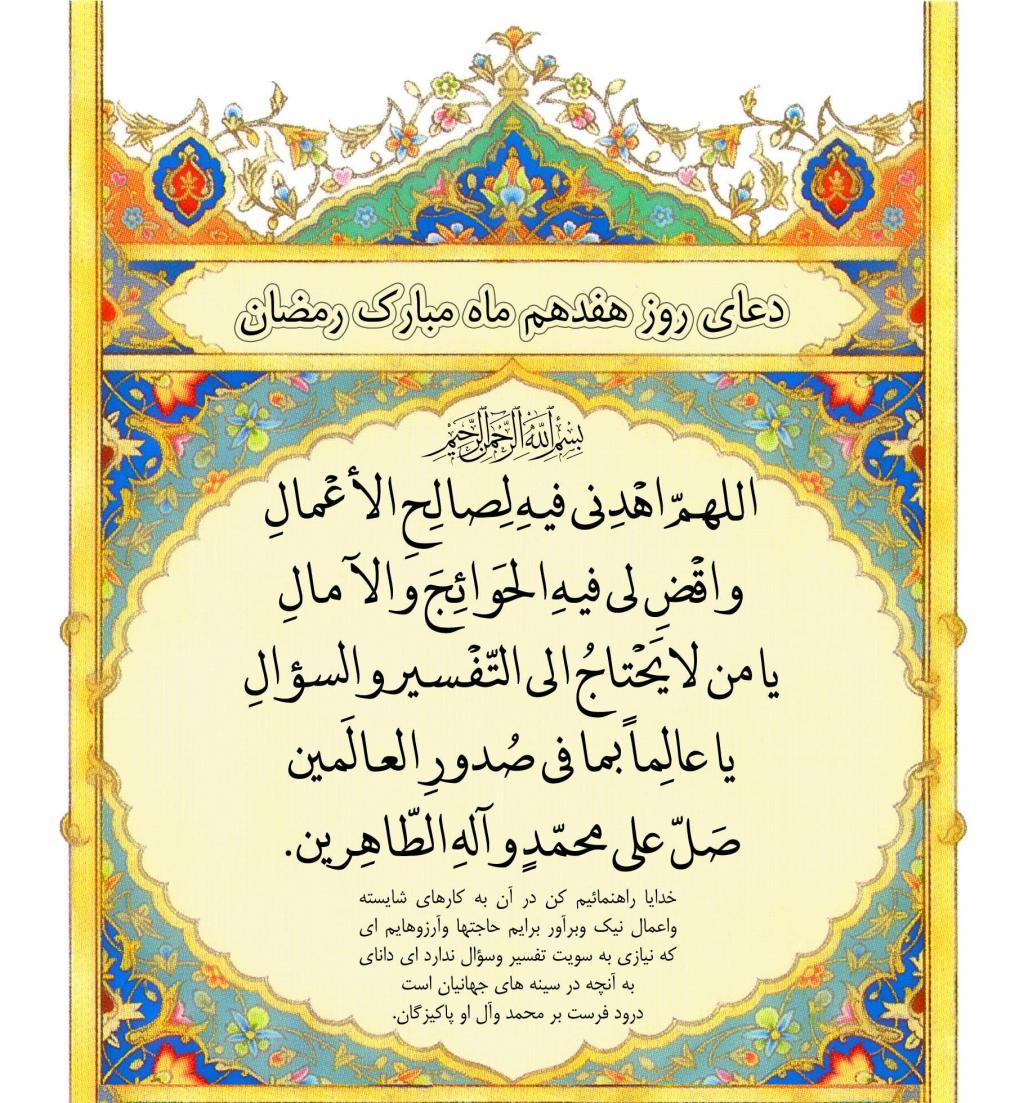 دعای روز هفدهم ماه مبارک رمضان
بِسْمِ اللَّهِ الرَّحْمَٰنِ الرَّحِيمِ
اللهمّ اهْدِنی فیهِ لِصالِحِ الأعْمالِ
واقْضِ لی فیهِ الحَوَائِجَ والآمالِ
یا من لا یَحْتاجُ الی التّفْسیر والسؤالِ
یا عالِماً بما فی صُدورِ العالَمین
صَلّ علی محمّدٍ وآلهِ الطّاهِرین.
خدایا راهنمائیم کن در آن به کارهای شایسته
واعمال نیک وبرآور برایم حاجتها وآرزوهایم ای
که نیازی به سویت تفسیر وسؤال ندارد ای دانای
به آنچه در سینه های جهانیان است
درود فرست بر محمد وآل او پاکیزگان.